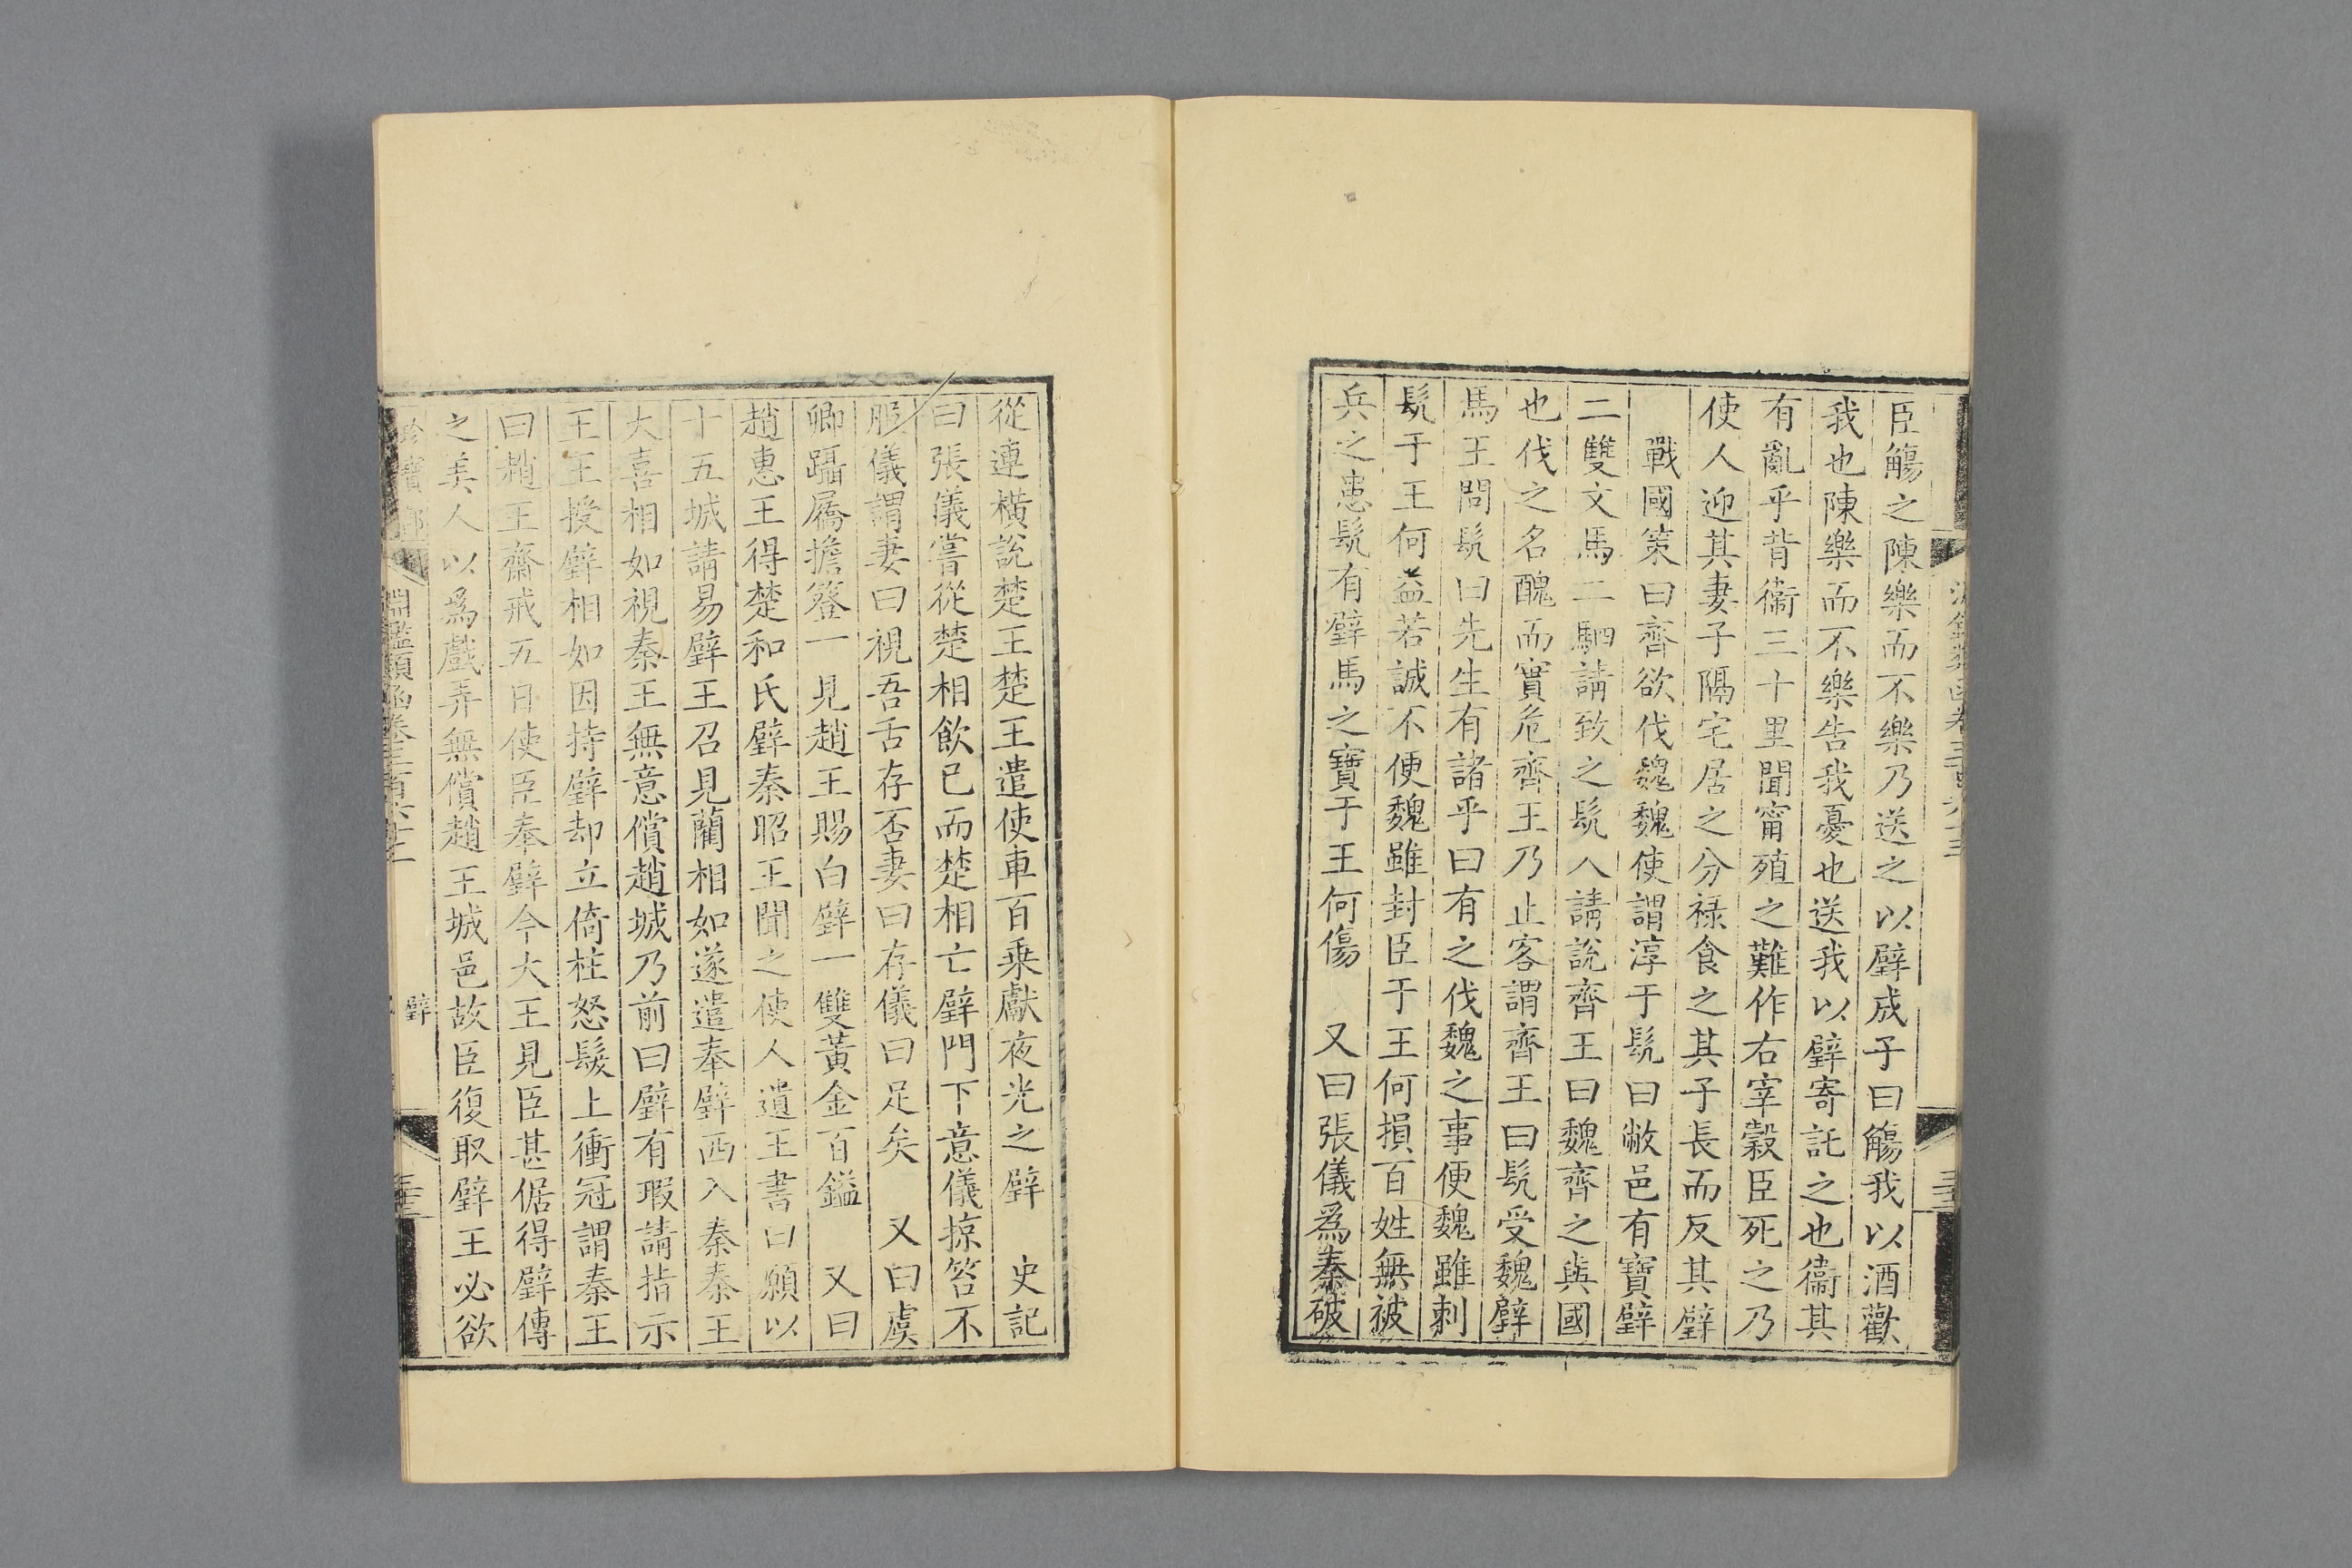 臣觴之陳樂而不樂乃送之以璧成子曰觴我以酒歡
我也陳樂而不樂告我憂也送我以璧寄託之也衞其
有亂乎背衞三十里聞甯殖之難作右宰穀臣死之乃
使人迎其妻子隔宅居之分祿食之其子長而反其璧
戰國策曰齊欲伐魏魏使謂淳于髡曰敝邑有寶璧
二雙文馬二駟請致之髡入請說齊王曰魏齊之與國
也伐之名醜而實危齊王乃止客謂齊王曰髡受魏璧
馬王問髡曰先生有諸乎曰有之伐魏之事便魏雖刺
髡于王何益若誠不便魏雖封臣于王何損百姓無被
兵之患髡有璧馬之寶于王何傷　又曰張儀爲秦破
從連橫說楚王楚王遣使車百乗獻夜光之璧　史記
曰張儀嘗從楚相飲已而楚相亡璧門下意儀掠笞不
服儀謂妻曰視吾舌存否妻曰存儀曰足矣　又曰虞
卿躡屩擔簦一見趙王賜白璧一雙黃金百鎰　又曰
趙惠王得楚和氏璧秦昭王聞之使人遺王書曰願以
十五城請易璧王召見藺相如遂遣奉璧西入秦秦王
大喜相如視秦王無意償趙城乃前曰璧有瑕請指示
王王授璧相如因持璧却立倚柱怒髮上衝冠謂秦王
曰趙王齋戒五日使臣奉璧今大王見臣甚倨得璧傳
之美人以爲戲弄無償趙王城邑故臣復取璧王必欲
珍寶部　淵鑑類函卷三百六十三　璧